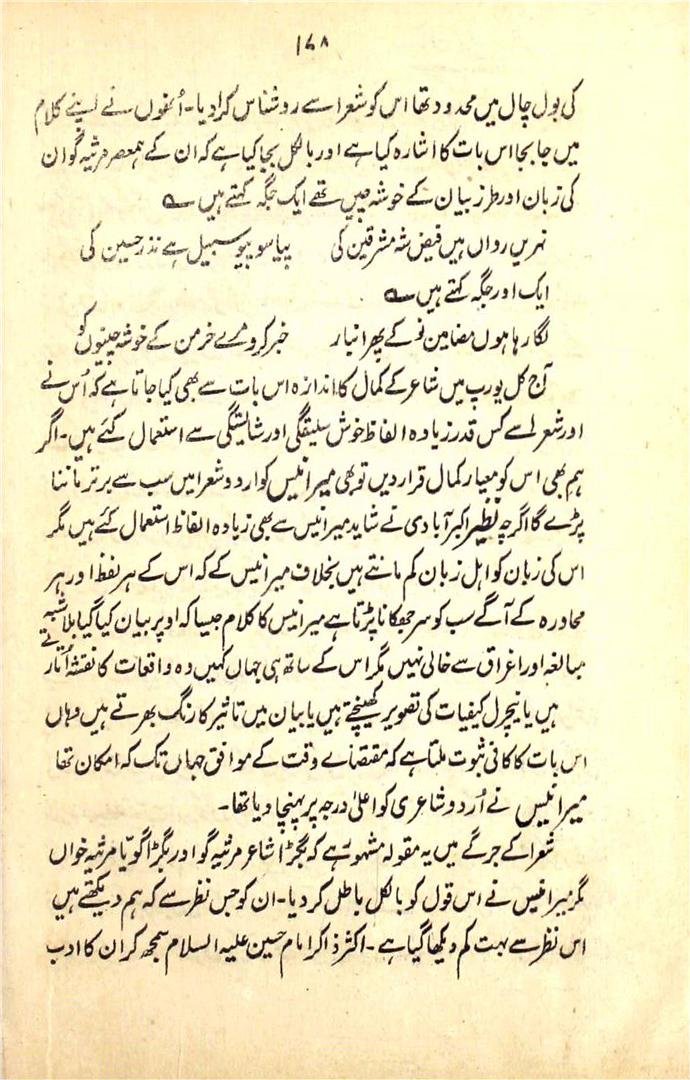 ۱۶۸
کی بول چال میں محدود تھا اس کو شعرا سے روشناس کرا دیا۔ اُنھوں نے اپنے کلام
میں جا بجا اس بات کا اشارہ کیا ہے اور بالکل بجا کیا ہے کہ ان کے ہمعصر مرثیہ گو ان
کی زبان اور طرز بیان کے خوشہ چیں تھے ایک جگہ کہتے ہیں ؎
نہریں رواں ہیں فیض شہ مشرقین کی پیاسو پیو سبیل ہے نذر حسین کی
ایک اور جگہ کہتے ہیں ؎
لگا رہا ہوں مضامین نو کے پھر انبار خبر کرو مرے خرمن کے خوشہ چینوں کو
آج کل یورپ میں شاعر کے کمال کا اندازہ اس بات سے بھی کیا جاتا ہے کہ اُس نے
اور شعرا سے کس قدر زیادہ الفاظ خوش سلیقگی اور شایستگی سے استعمال کئے ہیں۔ اگر
ہم بھی اس کو معیار کمال قرار دیں تو بھی میر انیس کو اردو شعرا میں سب سے برتر ماننا
پڑے گا اگرچہ نظیر اکبر آبادی نے شاید میر انیس سے بھی زیادہ الفاظ استعمال کئے ہیں مگر
اس کی زبان کو اہل زبان کم مانتے ہیں بخلاف میر انیس کے کہ اس کے ہر لفظ اور ہر
محاورہ کے آگے سب کو سر جھکانا پڑتا ہے میر انیس کا کلام جیسا کہ اوپر بیان کیا گیا بلا شبہ
مبالغہ اور اغراق سے خالی نہیں مگر اس کے ساتھ ہی جہاں کہیں وہ واقعات کا نقشہ اُتارتے
ہیں یا نیچرل کیفیات کی تصویر کھینچتے ہیں یا بیان میں تاثیر کا رنگ بھرتے ہیں وہاں
اس بات کا کافی ثبوت ملتا ہے کہ مقتضائے وقت کے موافق جہاں تک کہ امکان تھا
میر انیس نے اُردو شاعری کو اعلیٰ درجہ پر پہنچا دیا تھا۔
شعرا کے جرگے میں یہ مقولہ مشہور ہے کہ بگڑا شاعر مرثیہ گو اور بگڑا گویّا مرثیہ خواں
مگر میر انیس نے اس قول کو بالکل باطل کر دیا۔ ان کو جس نظر سے کہ ہم دیکھتے ہیں
اس نظر سے بہت کم دیکھا گیا ہے۔ اکثر ذاکر امام حسین علیہ السلام سمجھ کر ان کا ادب